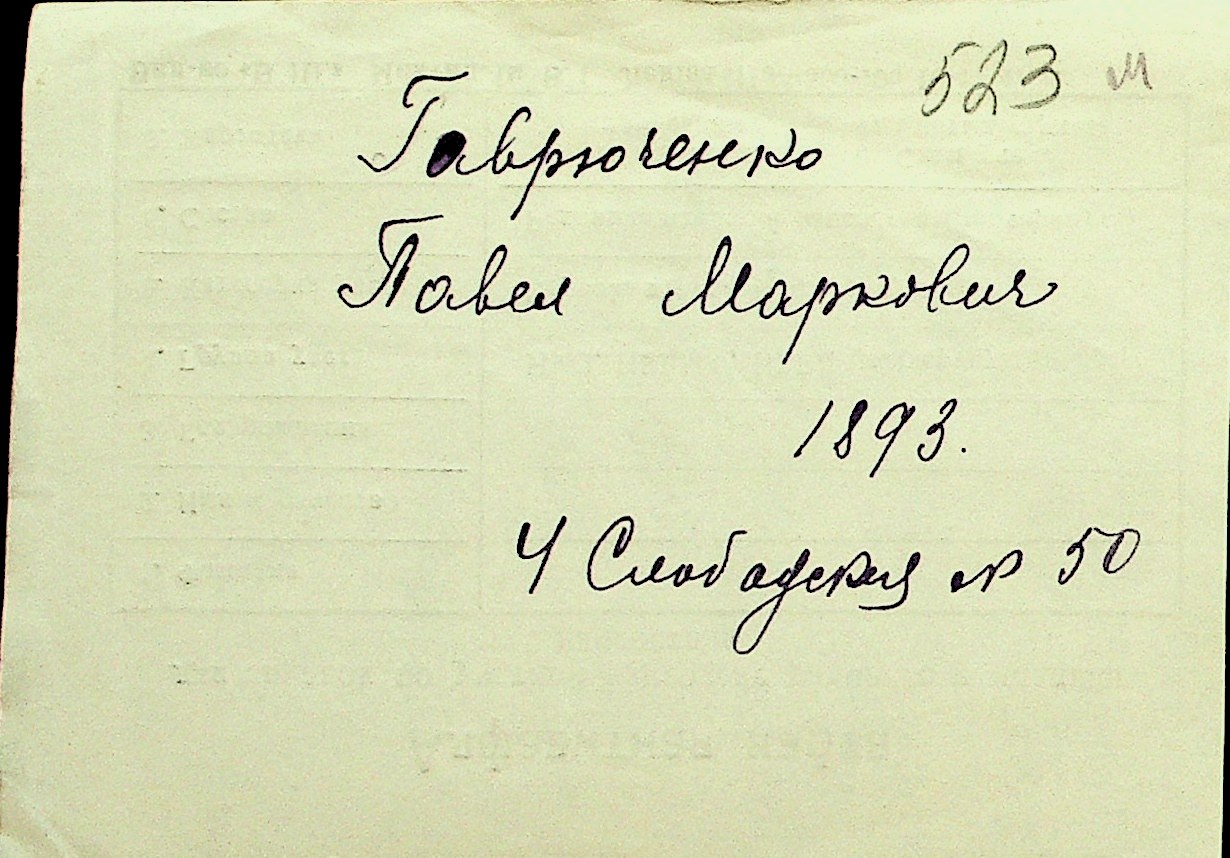 523 м
Гаврюченко
Павел Маркович
1893.
4 Слободская № 50